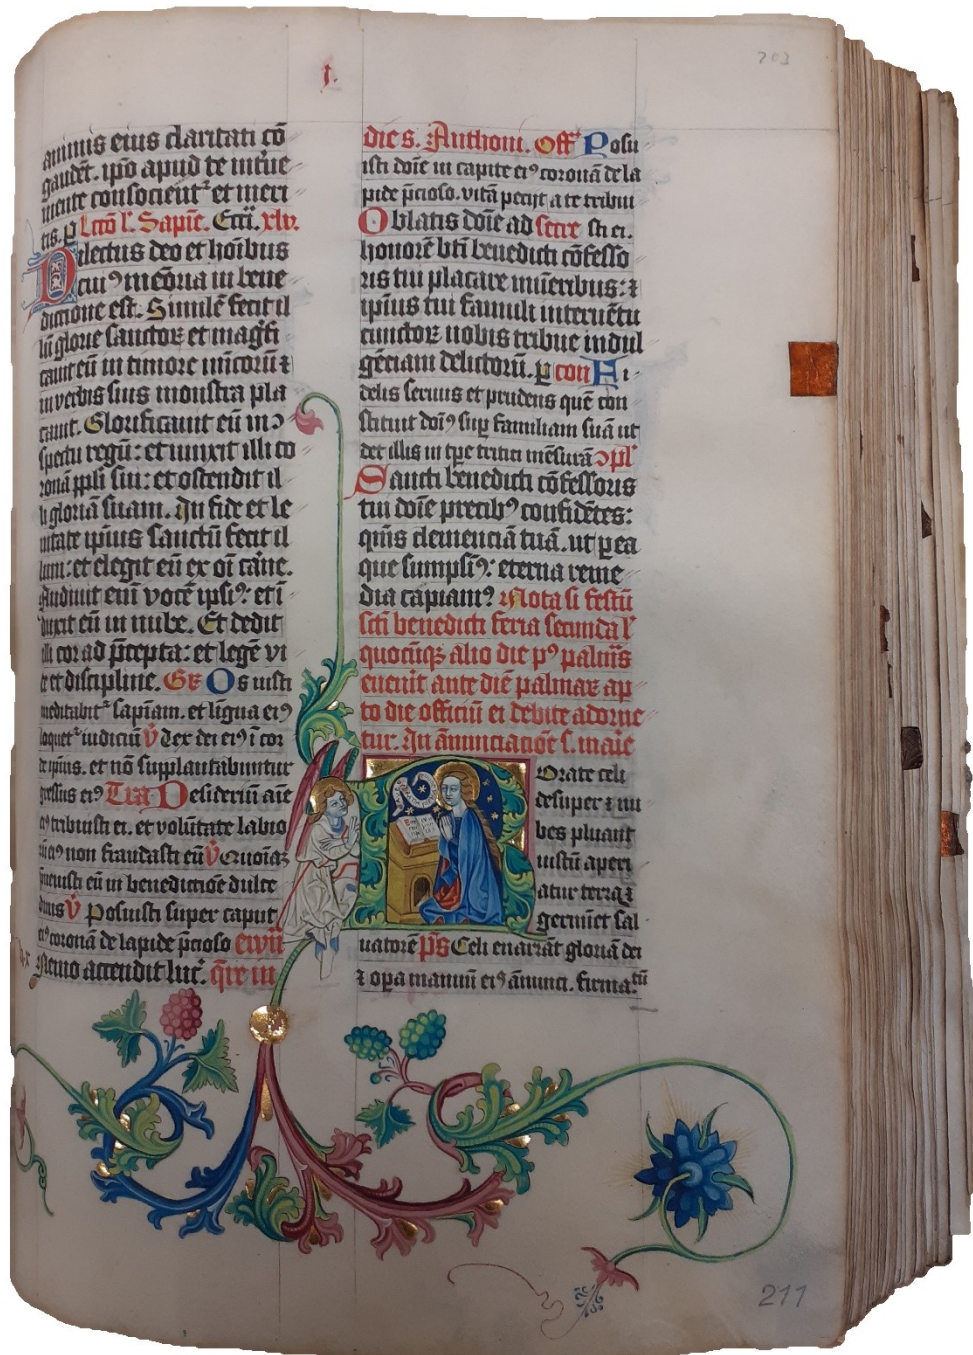 203
j.
animis eius claritati cō
gaudēt. ip̄o apud te int̾ue
niente consocient᷑ et meri
tis. p Lcc̄o l'. Sapīe. Ecci. xlv.
Dilectus deo et hoībus
cui⁹ memōria in bene
dictione est. Similē fecit il
lū glorie sanctoꝝ et magn̄fi
cauit eū in timore inīcorū ⁊
in verbis suis monstra pla
cauit. Glorificauit eū in ɔ
spectu regū: et iunxit illi co
ronā pp̄li sui: et ostendit il
li gloriā suam. In fide et le
nitate ip̄ius sanctū fecit il
lum: et elegit eū ex oī carne.
Audiuit enī vocē ipsi⁹: et ī
duxit eū in nube. Et dedit
illi cor ad p̄cepta: et legē vi
te et discipline. Gr̄ Os iusti
meditabit᷑ sapīam. et līgua ei⁹
loquet᷑ iudiciū v̄ Lex dei ei⁹ ī cor
de ip̄ius. et nō supplantabuntur
gressus ei⁹ Tra Desideriū aīe
ei⁹ tribuisti ei. et volūtate labio
ꝝ ei⁹ non fraudasti eū v̄ Quoīaꝫ
p̄uenisti eū in benedictiōe dulce
dinis v̄ Posuisti super caput
ei⁹ coronā de lapide p̄cioso ewū
Nemo accendit luc̾. q̄re in
die s. Anthoni. Off̄ Posu
isti dōie in capite ei⁹ coronā de la
pide p̄cioso. vitā pecijt a te tribui
Oblatis dōie ad secre sti ei.
honorē btī benedicti cōfesso
ris tui placare mūeribus: ⁊
ip̄ius tui famuli interuētu
cunctoꝝ nobis tribue indul
gēciam delictorū. ꝑ con Fi
delis seruus et prudens quē con
stituit dōi⁹ sup familiam suā ut
det illis in tp̄e tritici mēsurā ɔpl'
Sancti benedicti cōfessoris
tui dōie precib⁹ confidētes:
qu̾s clemenciā tuā. ut ꝑ ea
que sumpsi⁹: eterna reme
dia capiam⁹ Nota si festū
sctī benedicti feria secunda l'
quocūqꝫ alio die p⁹ palmis
euenīt ante diē palmaꝝ ap
to die officiū ei debite adorne
tur. In ānunciatiōe s. marie
Rorate celi
desuper ⁊ nu
bes pluant
iustū aperi
atur terra ⁊
germīet sal
uatorē p̄s Celi enarrāt gloriā dei
⁊ opa manuū ei⁹ ānunci. firma.tū
211